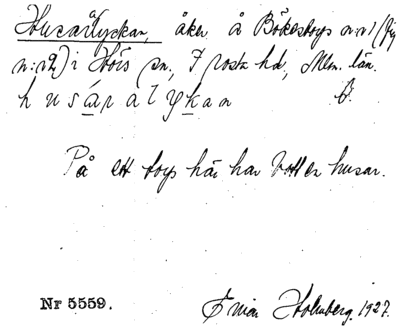 Husarlyckan, åker å Bökestorps n:r 1 (fig
n:r 2) i Höis sn, Frosta hd, Mlm. län.
h u s ā r a l y k a n
På ett torp här har bott en husar.
Nr 5559. Holmberg. 1927.